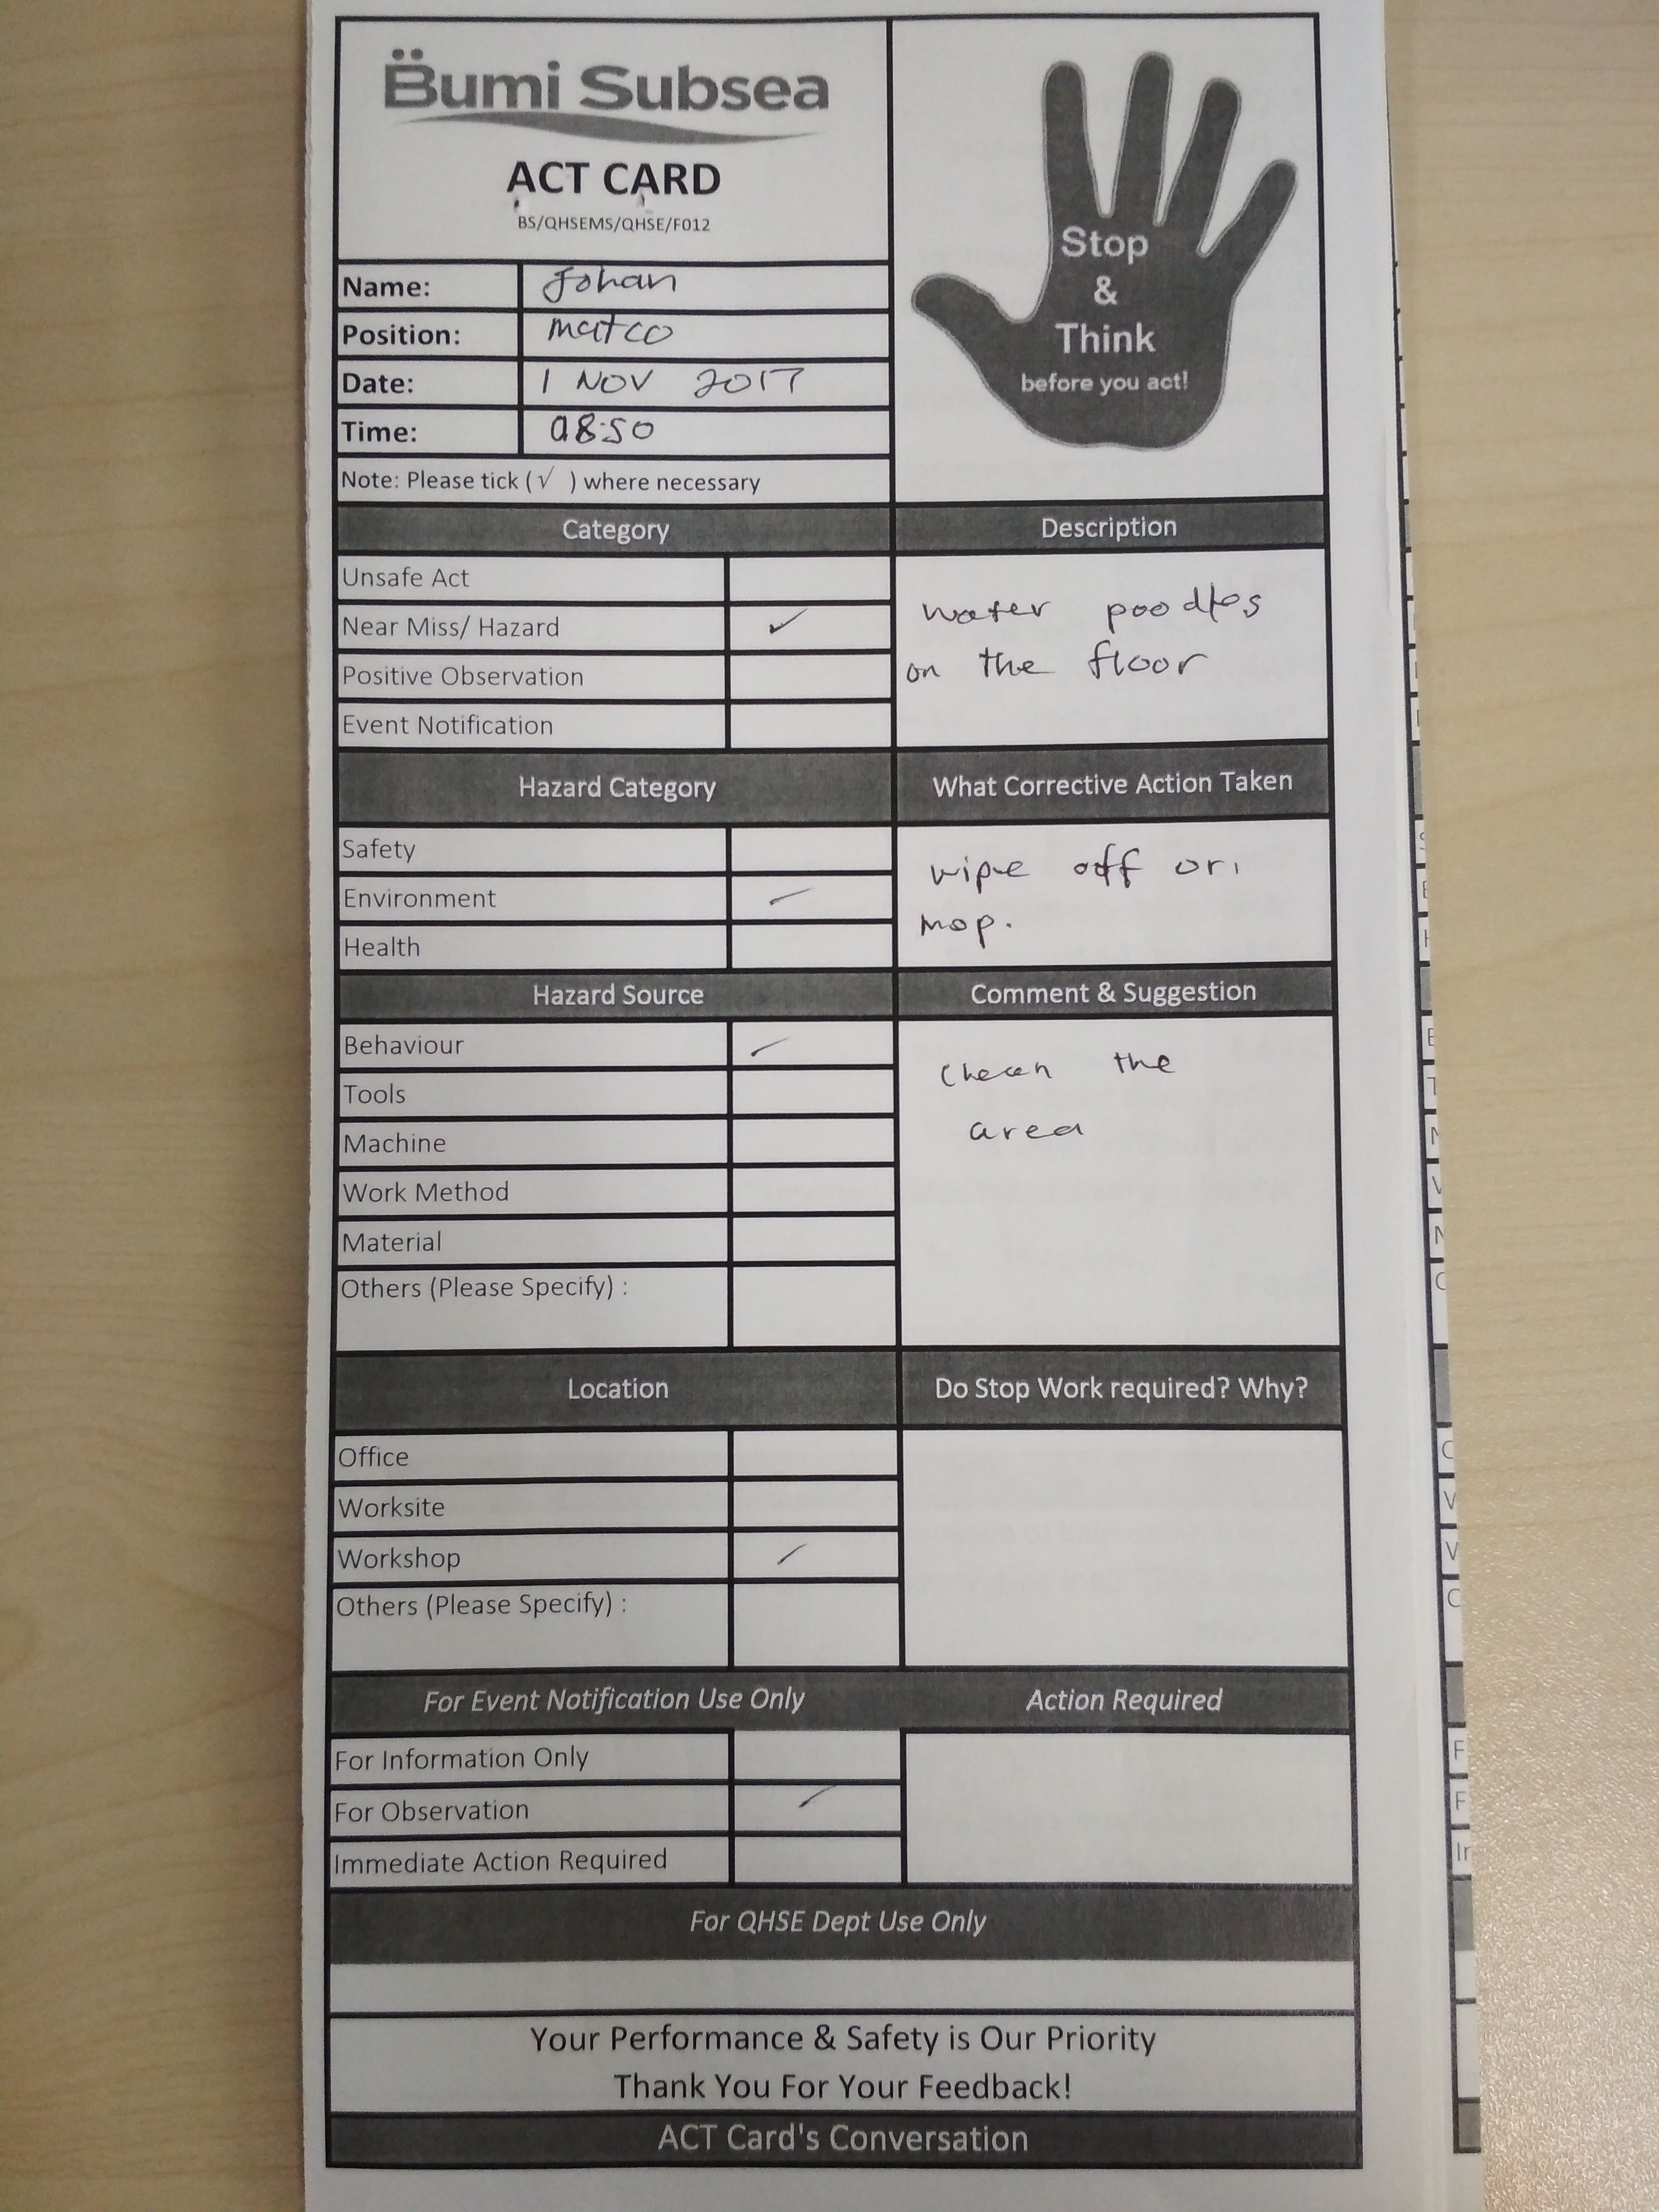 Bumi Subsea
ACT CARD
BS/QHSEMS/QHSE/F012
Stop
&
Think
before you act!
Name: Johan
Position: matco
Date: 1 NOV 2017
Time: 08:50
Note: Please tick (√ ) where necessary
Category
Unsafe Act
Near Miss/ Hazard ✓
Positive Observation
Event Notification
Description
water poodles
on the floor
Hazard Category
Safety
Environment ✓
Health
What Corrective Action Taken
wipe off or
mop.
Hazard Source
Behaviour ✓
Tools
Machine
Work Method
Material
Others (Please Specify) :
Comment & Suggestion
the
area
Location
Office
Worksite
Workshop ✓
Others (Please Specify) :
Do Stop Work required? Why?
For Event Notification Use Only
For Information Only
For Observation ✓
Immediate Action Required
Action Required
For QHSE Dept Use Only
Your Performance & Safety is Our Priority
Thank You For Your Feedback!
ACT Card's Conversation